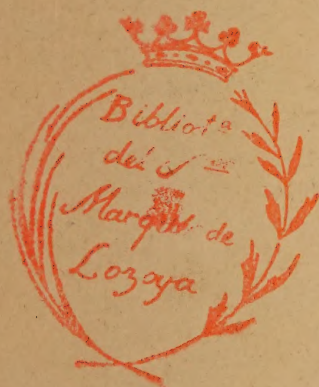 Bibliotª
del Sᵒʳ
Marqués de
Lozoya